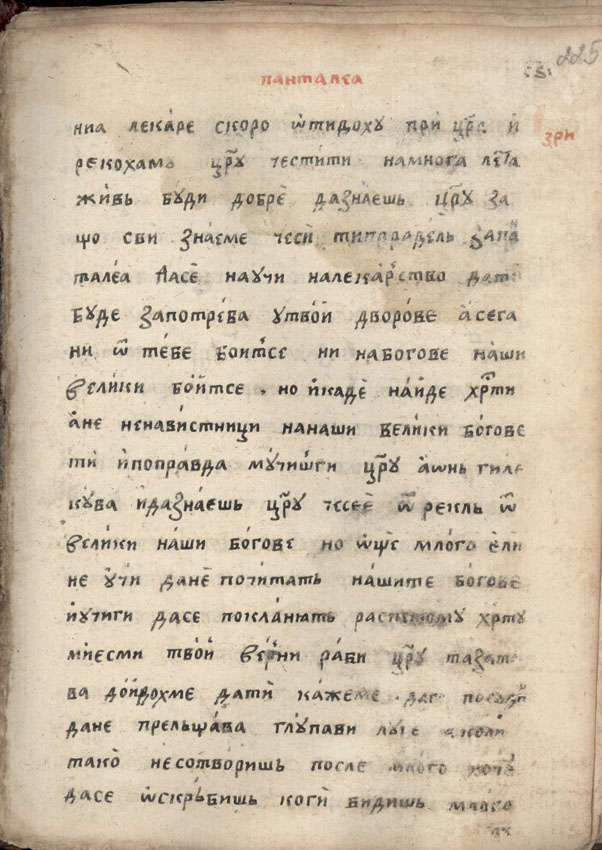 панталеа
225
зри
ниа лекаре скоро ѿтидоху при цр҃а и
рекохамь цр҃у честити намнога лѣта
живь буди добрѐ дазнаешь цр҃у за
що сви знаеме чеси типоравдель
талеаАасѐ научи налекарство дати
буде запотреба утвои дворове асега
ни ѿ тебе боитсе ни набогове наши
велики боитсе . но икадѐ наиде хрⷭ҇ти
ане ненавистници нанаши велики богове
ти ипоправда мучишги цр҃у аѡнь гиле
кува идазнаешь цр҃у чесеѐ ѿрекль ѿ
велики наши богове но ѡще млого ели
не учи данѐ почитать нашите богове
иучиги дасе покланють распетому хрⷭ҇ту
миесми твои верни раби цр҃у
ва доидохме дати кажеме
дане прельщава глупави луге
тако несотворишь после млого
дасе ѡскрьбишь коги видишь млого